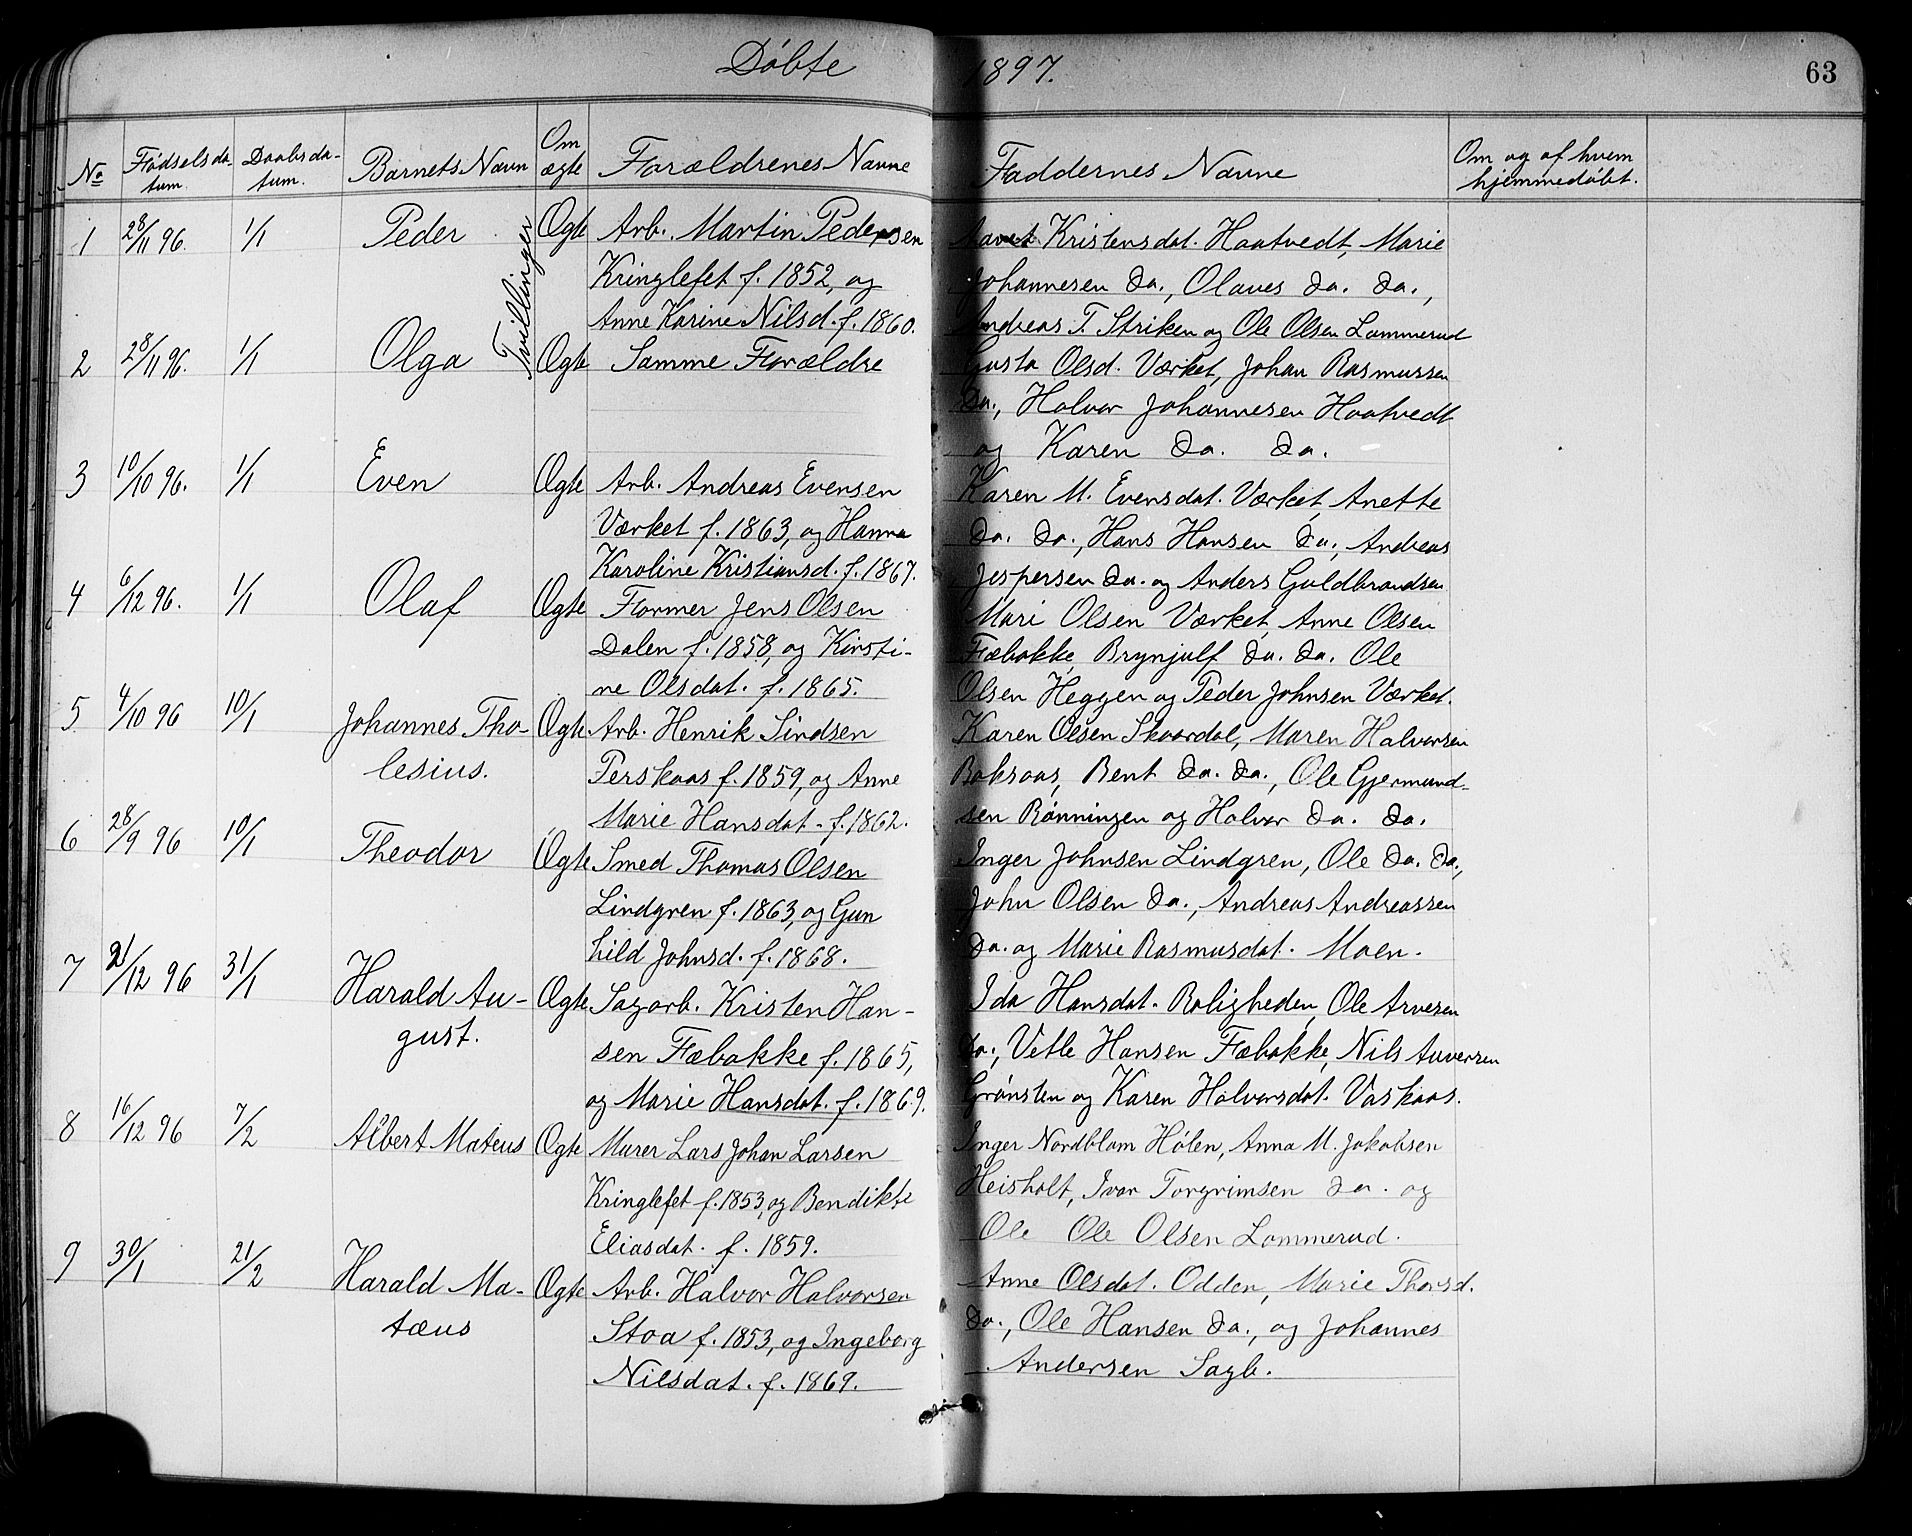 Døbte 1897. 63
No Fødselsda- Daabsda- Barnets Navn Om Forældrenes Navne Faddernes Navne Om og af hvem
tum. tum. ægte hjemmedøbt.
1 28/11 96. 1/1 Peder Tvillinger Ægte Arb. Martin Pedersen Kristensdat. Haatvedt, Marie
Kringlefet f. 1852, og Johannesen do., Olaves do. do.,
Anne Karine Nilsd. f. 1860. Andreas T. Striken og Ole Olsen Lammerud
2 28/11 96. 1/1 Olga Ægte Samme Forældre Gusta Olsd. Værket, Johan Rasmussen
do., Halvor Johannesen Haatvedt
og Karen do. do.
3 10/10 96. 1/1 Even Ægte Arb. Andreas Evensen Karen M. Evensdat. Værket, Anette
Værket f. 1863, og Hanna do. do., Hans Hansen do., Andreas
Karoline Kristiansd. f. 1867. Jespersen do. og Anders Guldbrandsen
4 6/12 96. 1/1 Olaf Ægte Former Jens Olsen Mari Olsen Værket, Anne Olsen
Dalen f. 1858, og Kirsti- Fæbakke, Brynjulf do. do. Ole
ne Olsdat. f. 1865. Olsen Heggen og Peder Johnsen Værket.
5 4/10 96 10/1 Johannes Tho- Ægte Arb. Henrik Sindsen Karen Olsen Skaardal, Maren Halvorsen
lesius. Perskaas f. 1859, og Anne Baksaas, Bent do. do., Ole Gjermund-
Marie Hansdat. f. 1862. sen Rønningen og Halvor do. do.
6 28/9 96 10/1 Theodor Ægte Smed Thomas Olsen Inger Johnsen Lindgren, Ole do. do.,
Lindgren f. 1863, og Gun John Olsen do., Andreas Andreassen
hild Johnsd. f. 1868. do. og Marie Rasmusdat. Moen.
7 21/12 96 31/1 Harald Au- Ægte Sagarb. Kristen Han- Ida Hansdat. Roligheden, Ole Arvesen
gust. sen Fæbakke f. 1865, do., Vetle Hansen Fæbakke, Nils Auversen
og Marie Hansdat. f. 1869. Grønsten og Karen Halvorsdat. Vaskaas.
8 16/12 96 7/2 Albert Mateus Ægte Murer Lars Johan Larsen Inger Nordblom Hølen, Anna M. Jakobsen
Kringlefet f. 1853, og Bendikte Heisholt, Ivar Torgrimsen do. og
Eliasdat. f. 1859. Ole Ole Olsen Lammerud.
9 30/1 21/2 Harald Ma- Ægte Arb. Halvor Halvorsen Anne Olsdat. Odden, Marie Thorsd.
tæus Stoa f. 1853, og Ingeborg do., Ole Hansen do., og Johannes
Nilsdat. f. 1869. Andersen Sagb.